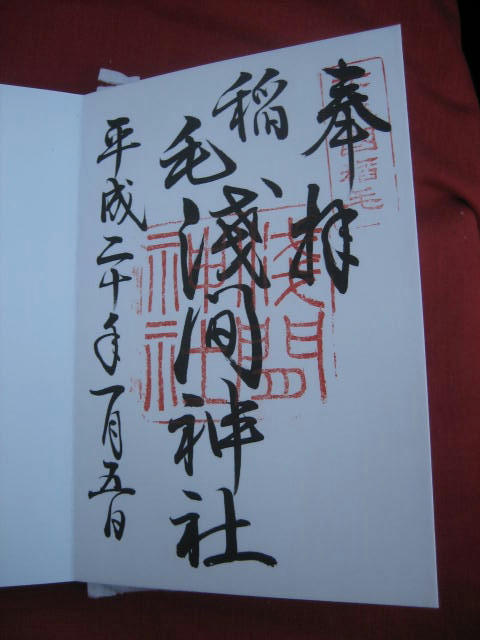 奉拝
稲毛
淺間神社
平成二十年一月五日
稲毛
淺間
神社